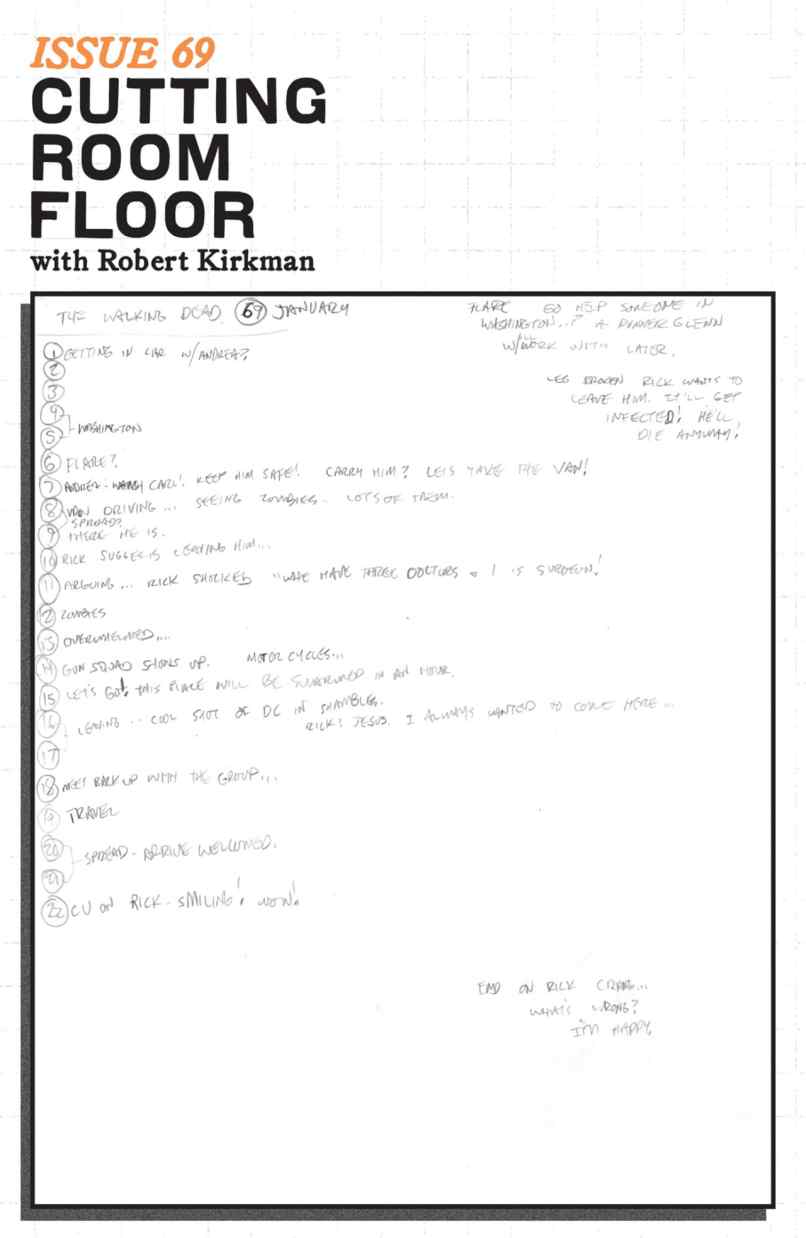 ISSUE 69
CUTTING
ROOM
FLOOR
with Robert Kirkman
THE WALKING DEAD 69 JANUARY
FLARE GO HELP SOMEONE IN
WASHINGTON...? A GLENN
W/WORK WITH LATER.
LEG BROKEN RICK WANTS TO
LEAVE HIM. IT'LL GET
INFECTED! HE'LL
DIE ANYWAY!
1 GETTING IN CAR W/ANDREA?
2
3
4
5 WASHINGTON
6 FLARE?
7 ANDREA - CARL! KEEP HIM SAFE! CARRY HIM? LETS TAKE THE VAN!
8 VAN DRIVING... SEEING ZOMBIES. LOTS OF THEM.
SPREAD?
9 THERE HE IS.
10 RICK SUGGESTS LEAVING HIM...
11 ARGUING... RICK SHOCKED "WE HAVE THREE DOCTORS & 1 IS SURGEON!
12 ZOMBIES
13 OVERWHELMED...
14 GUN SQUAD SHOWS UP. MOTORCYCLES...
15 LET'S GO! THIS PLACE WILL BE SWARMED IN AN HOUR.
16 LEAVING... COOL SHOT OF DC IN SHAMBLES.
RICK: JESUS. I ALWAYS WANTED TO COME HERE...
17
18 MEET BACK UP WITH THE GROUP...
19 TRAVEL
20 SPREAD - ARRIVE WELCOMED.
21
22 CU ON RICK - SMILING! WOW!
END ON RICK CRYING...
WHAT'S WRONG?
I'M HAPPY.